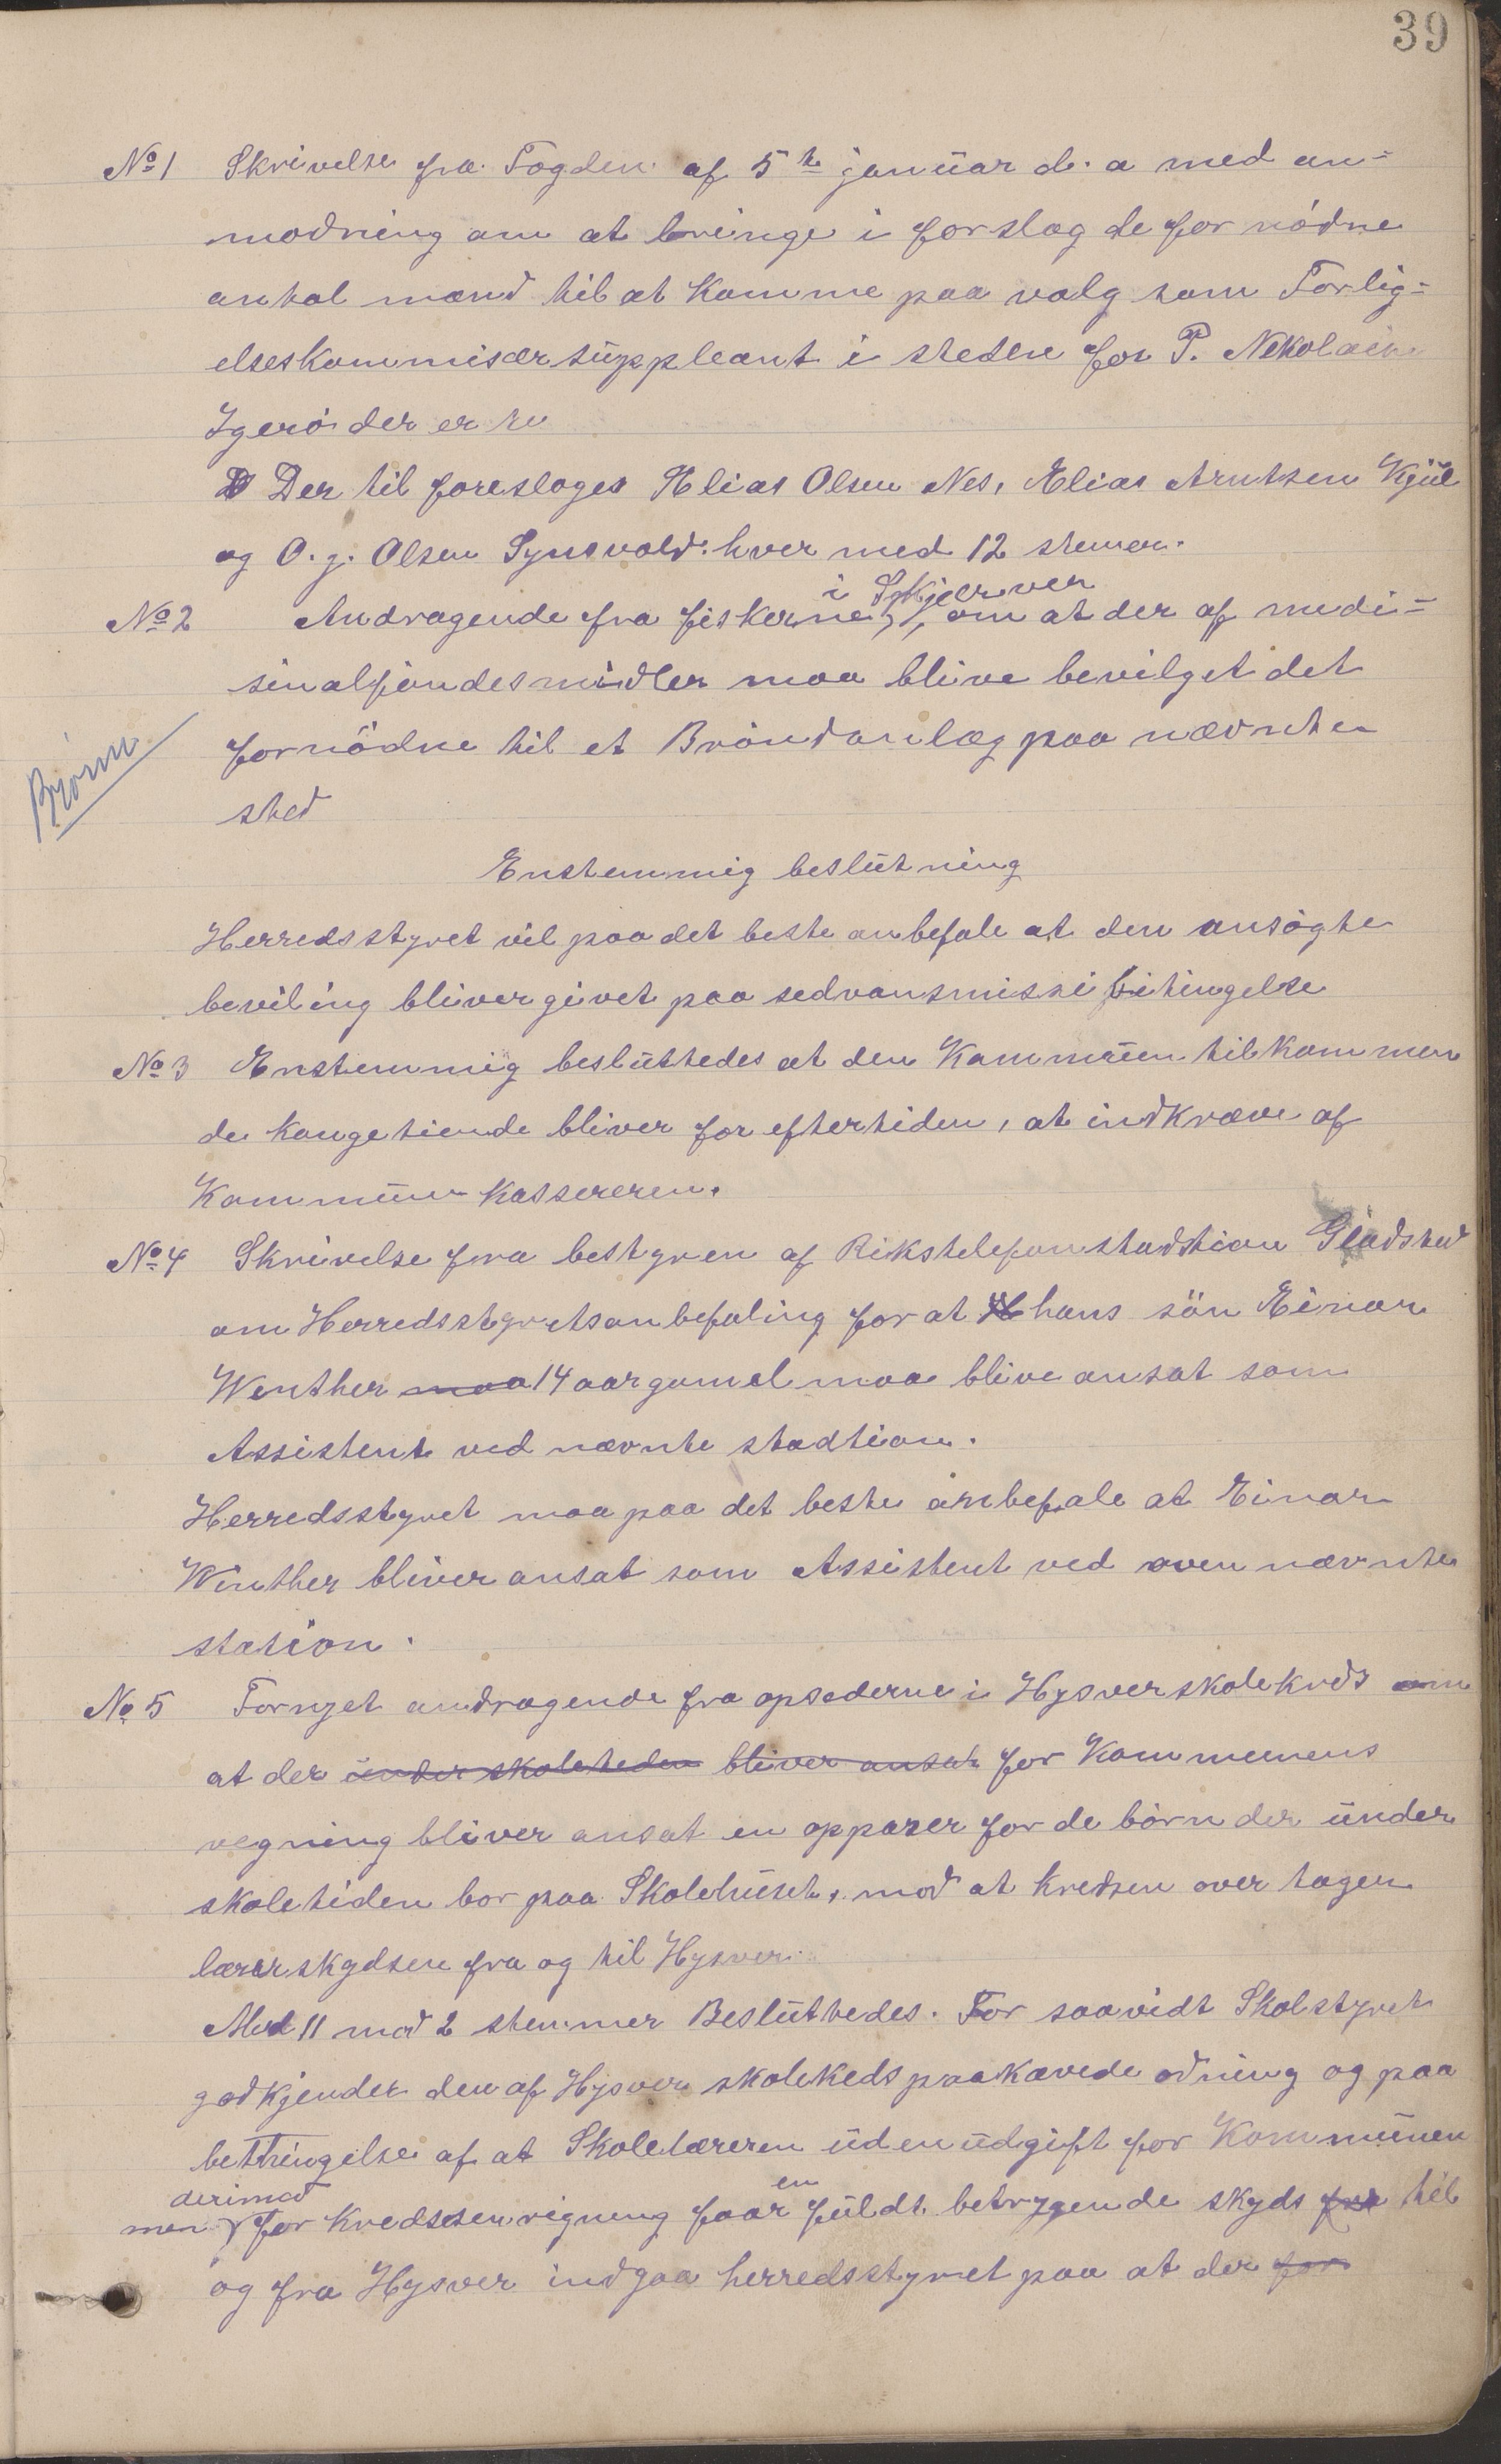 39
No 1 Skrivelse fra Fogden af 5te januar d. a med an-
modning om at bringe i forslag de for nødne
antal mænd til at komme paa valg som Forlig-
elseskommisærsuppleant i stedte for P. Nikolaisen
Igerø der er
Der til foresloges Elias Olsen Nes, Elias Arntsen Kjul
og O. j. Olsen Synsvold. hver med 12 stemer.
i Skjærver
No 2 Andragende fra fiskerne, om at der af medi-
sinalfondesmidler maa blive bevilget det
fornödne til et Bröndanlæg paa nævnte
sted
Bjørn
Enstemmig beslutning
Herredsstyret vil paa det beste anbefale at den ansögte
beviling bliver givet paa sedvansmissi bitingelse
No 3 Enstemmig besluttedes at den Kommunen tilkommen
de kongetiende bliver for eftertiden, at indkræve af
Kommune kassereren.
No 4 Skrivelse fra bestyren af Rikstelefonstadstion Gladstad
om Herredsstyretsanbefaling for at hans sön Einar
Winther maa 14 aar gamel maa blive ansat som
Assistent ved nævnte stadtion.
Herredsstyret maa paa det beste anbefale at Einar
Winther bliver ansat som Assistent ved oven nævnte
station.
No 5 Fornyet andragende fra opsederne i Hysver skolekrds om
at der under skoleteden bliver ansat for Kommunens
regning bliver ansat en oppaser for de börn der under
skoletiden bor paa Skolehuset, mod at kredsen over tager
lærerskydsen fra og til Hysver.
Med 11 mod 2 stemmer Besluttedes. For saavidt Skolstyret
godkjender den af Hysver skolekeds paakævede odning og paa
bettingelse af at Skolelæreren uden udgift for Kommunen
derimod en
men for kredssen rigning faar fuldt betryggende skyds fra til
og fra Hysver indgaa herredsstyret paa at der for